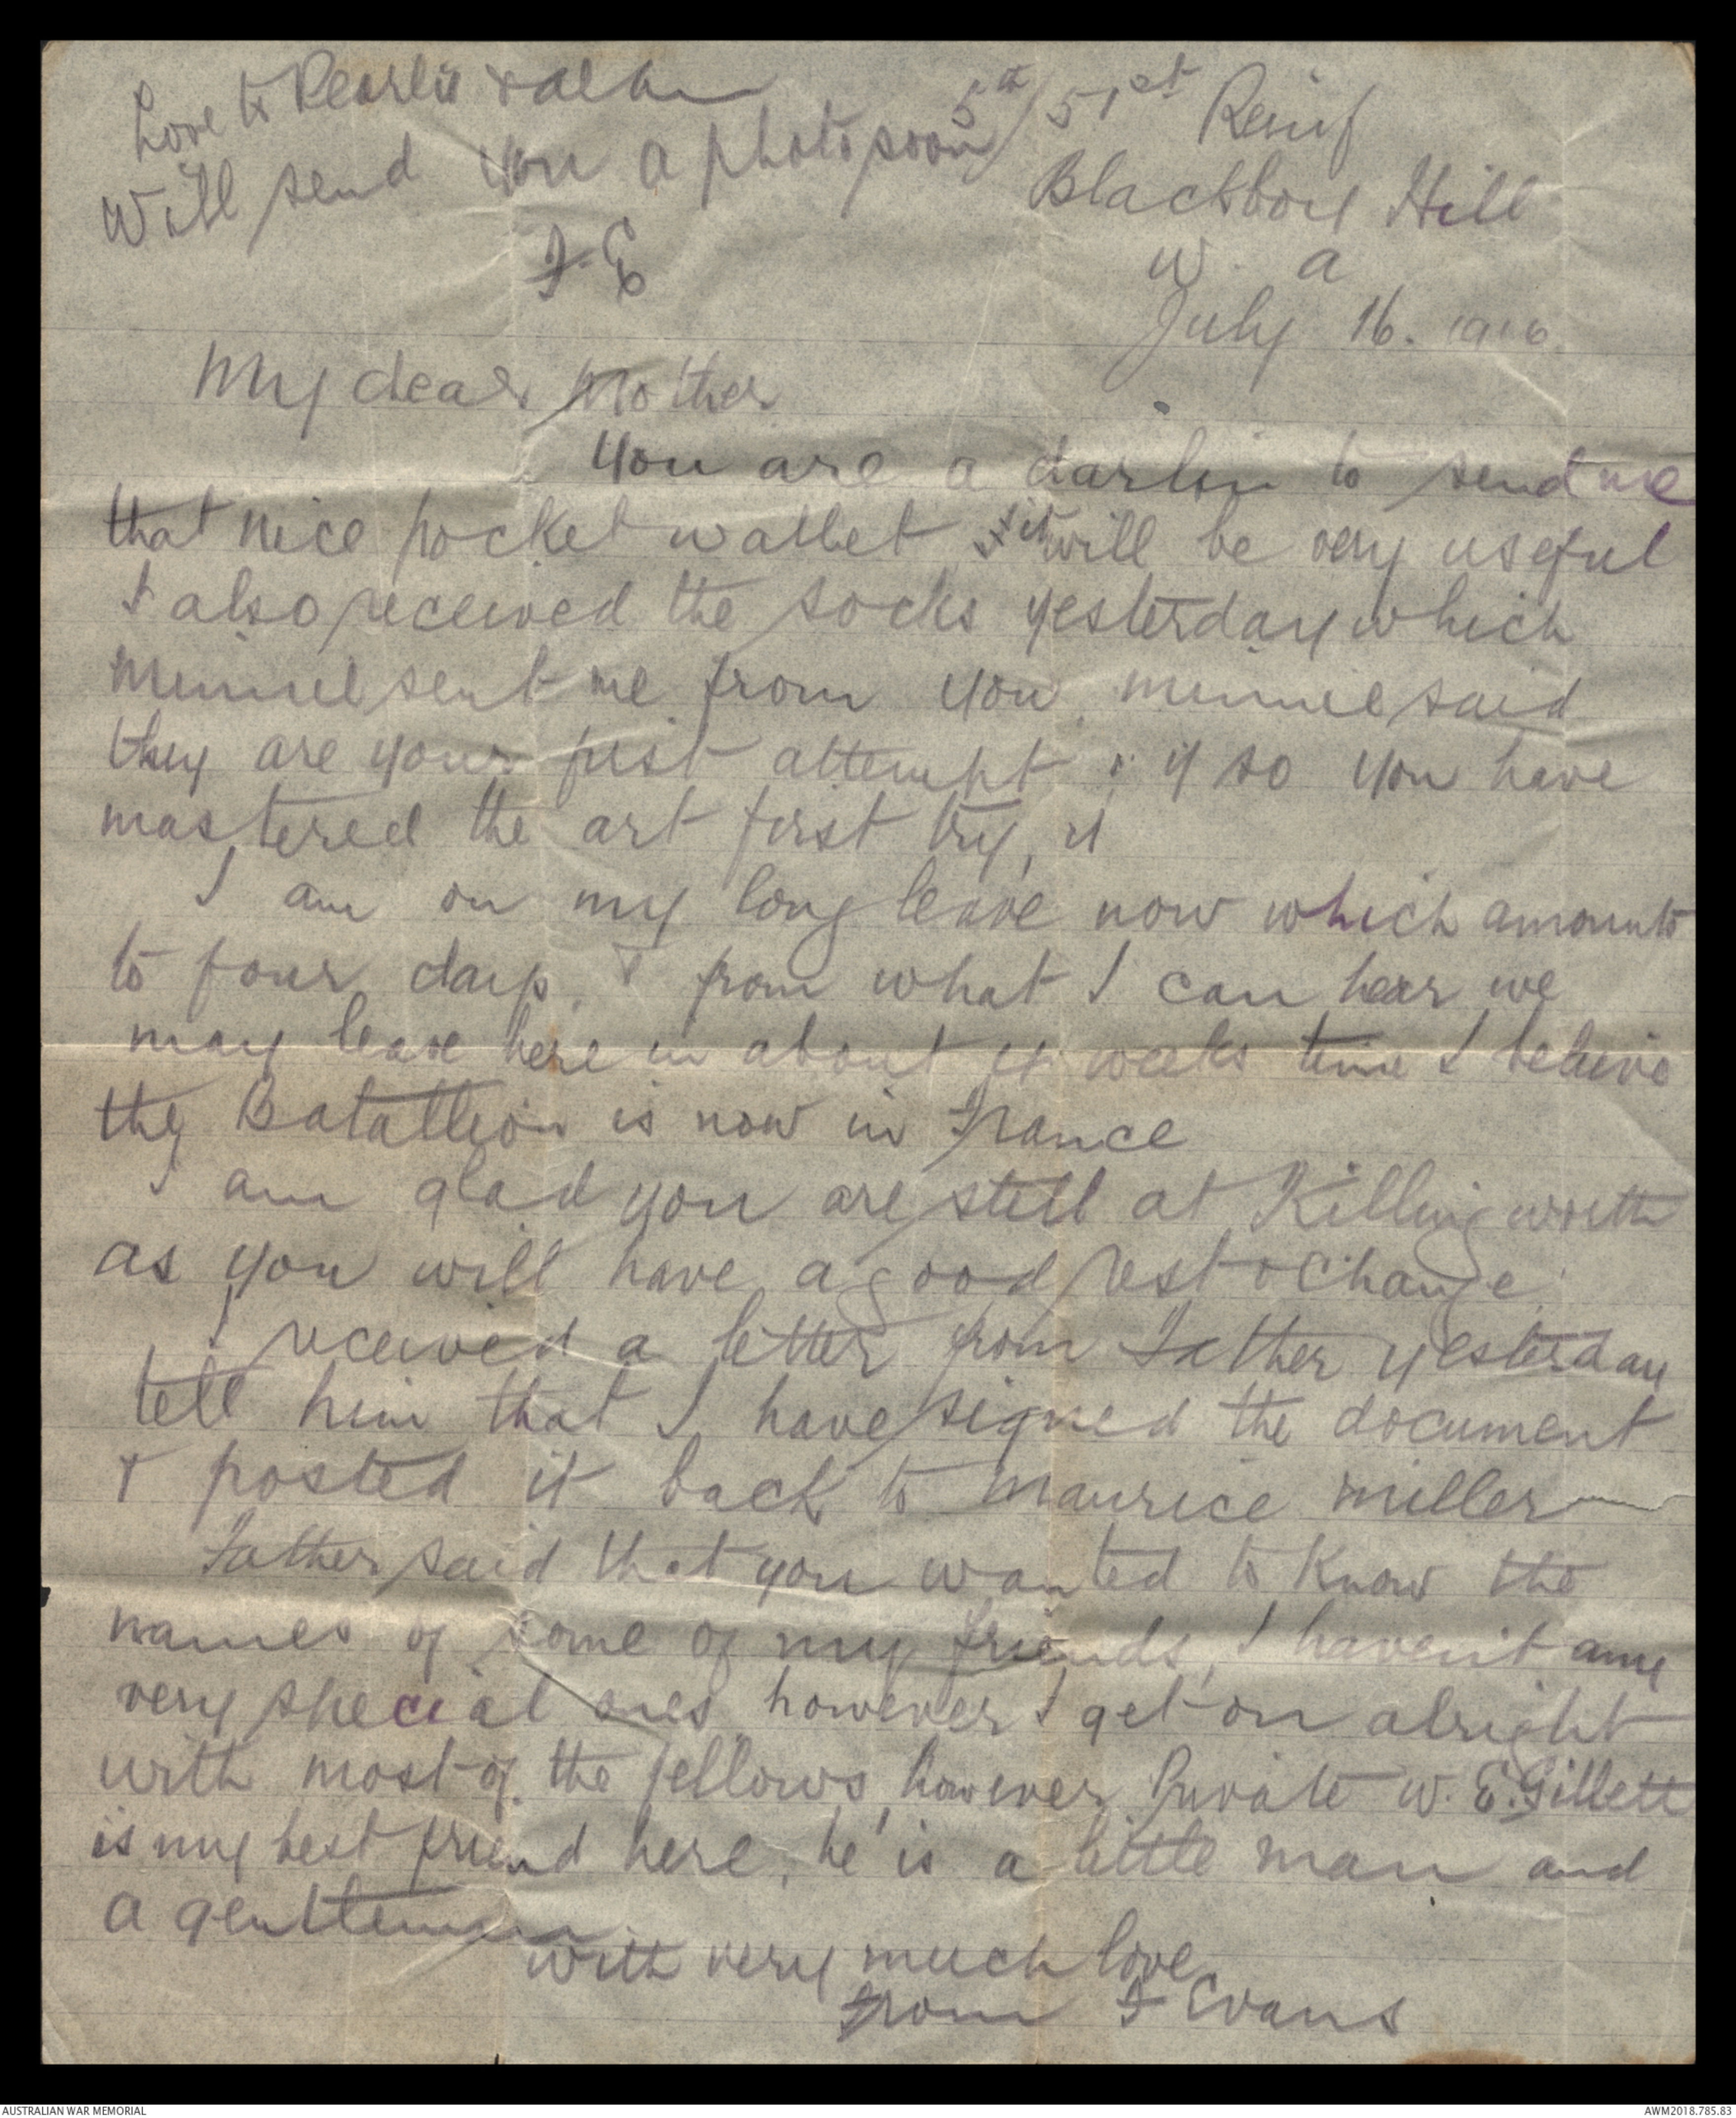 Love to Pearlie &
Will send you a photo soon
F. E
5th/51st Reinf
Blackboy Hill
W. A
July 16. 1916.
My dear Mother
You are a darlin to send me
that nice pocket wallet & it will be very useful
I also received the socks yesterday which
Minnie sent me from you, Minnie said
they are your first attempt, if so you have
mastered the art first try,
I am on my long leave now which amounts
to four days. & from what I can hear we
may leave here in about weeks time I beleive
the Batallion is now in France
I am glad you are still at Killingworth
as you will have a good rest & change.
I received a letter from Father yesterday
tell him that I have signed the document
& posted it back to Maurice Miller
Father said that you wanted to know the
names of some of my friends, I haven't any
very special ones however I get on alright
with most of the fellows however Private W. E. Gillett
is my best friend here, he is a little man and
a gentleman.
With very much love
From F Evans
AUSTRALIAN WAR MEMORIAL
AWM2018.785.83